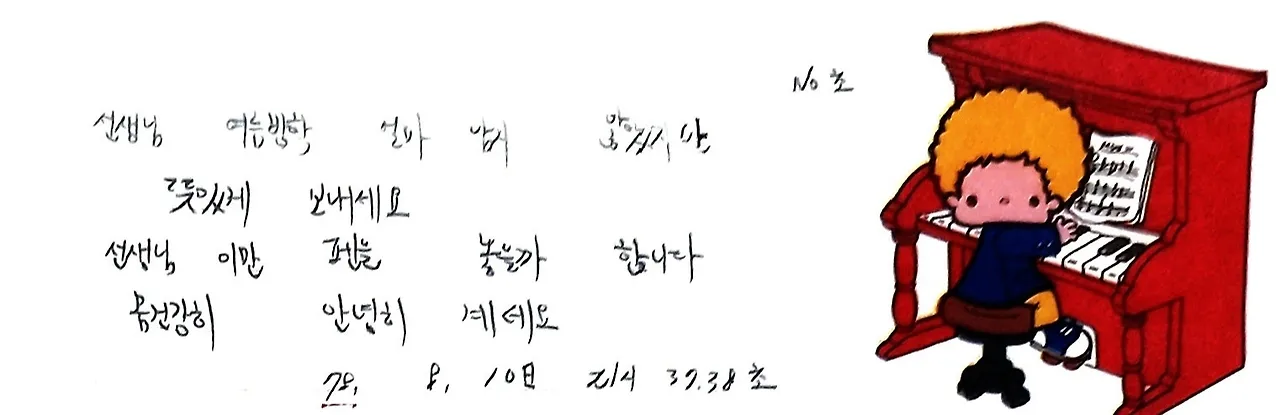 No 초
선생님 여름방학 얼마 남지 않았지만,
뜻있게 보내세요
선생님 이만 펜을 놓을까 합니다
몸건강히 안녕히 계세요
78, 8, 10日 37.38 초